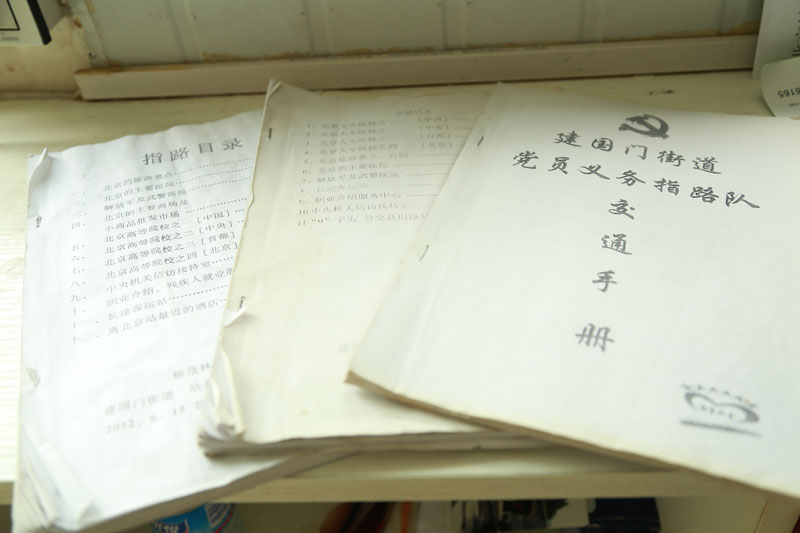 指路目录
一、北京的旅游景点
二、北京的主要医院
三、解放军及武警医院
四、北京的主要商场及
小商品批发市场
五、北京高等院校之一［中国］
六、北京高等院校之二［中央］
七、北京高等院校之三［首都］
八、北京高等院校之四［北京］
九、中央机关信访接待室
十、职业介绍、残疾人就业
十一、长途客运站
十二、离北京站最近的酒店
杨茂林
建国门街道 站
2012.6.15
指路目录
1、北京大专院校之一［中国］
2、北京大专院校之二［中央］
3、北京大专院校之三［首都］
4、北京大专院校之四［北京］
5、北京旅游景点、公园
6、北京的主要医院
7、解放军及武警医院
8、长途客运站
9、职业介绍服务中心
10中央机关信访接待
11"9"字头 公交
建国门街道
党员义务指路队
交
通
手
册
8165